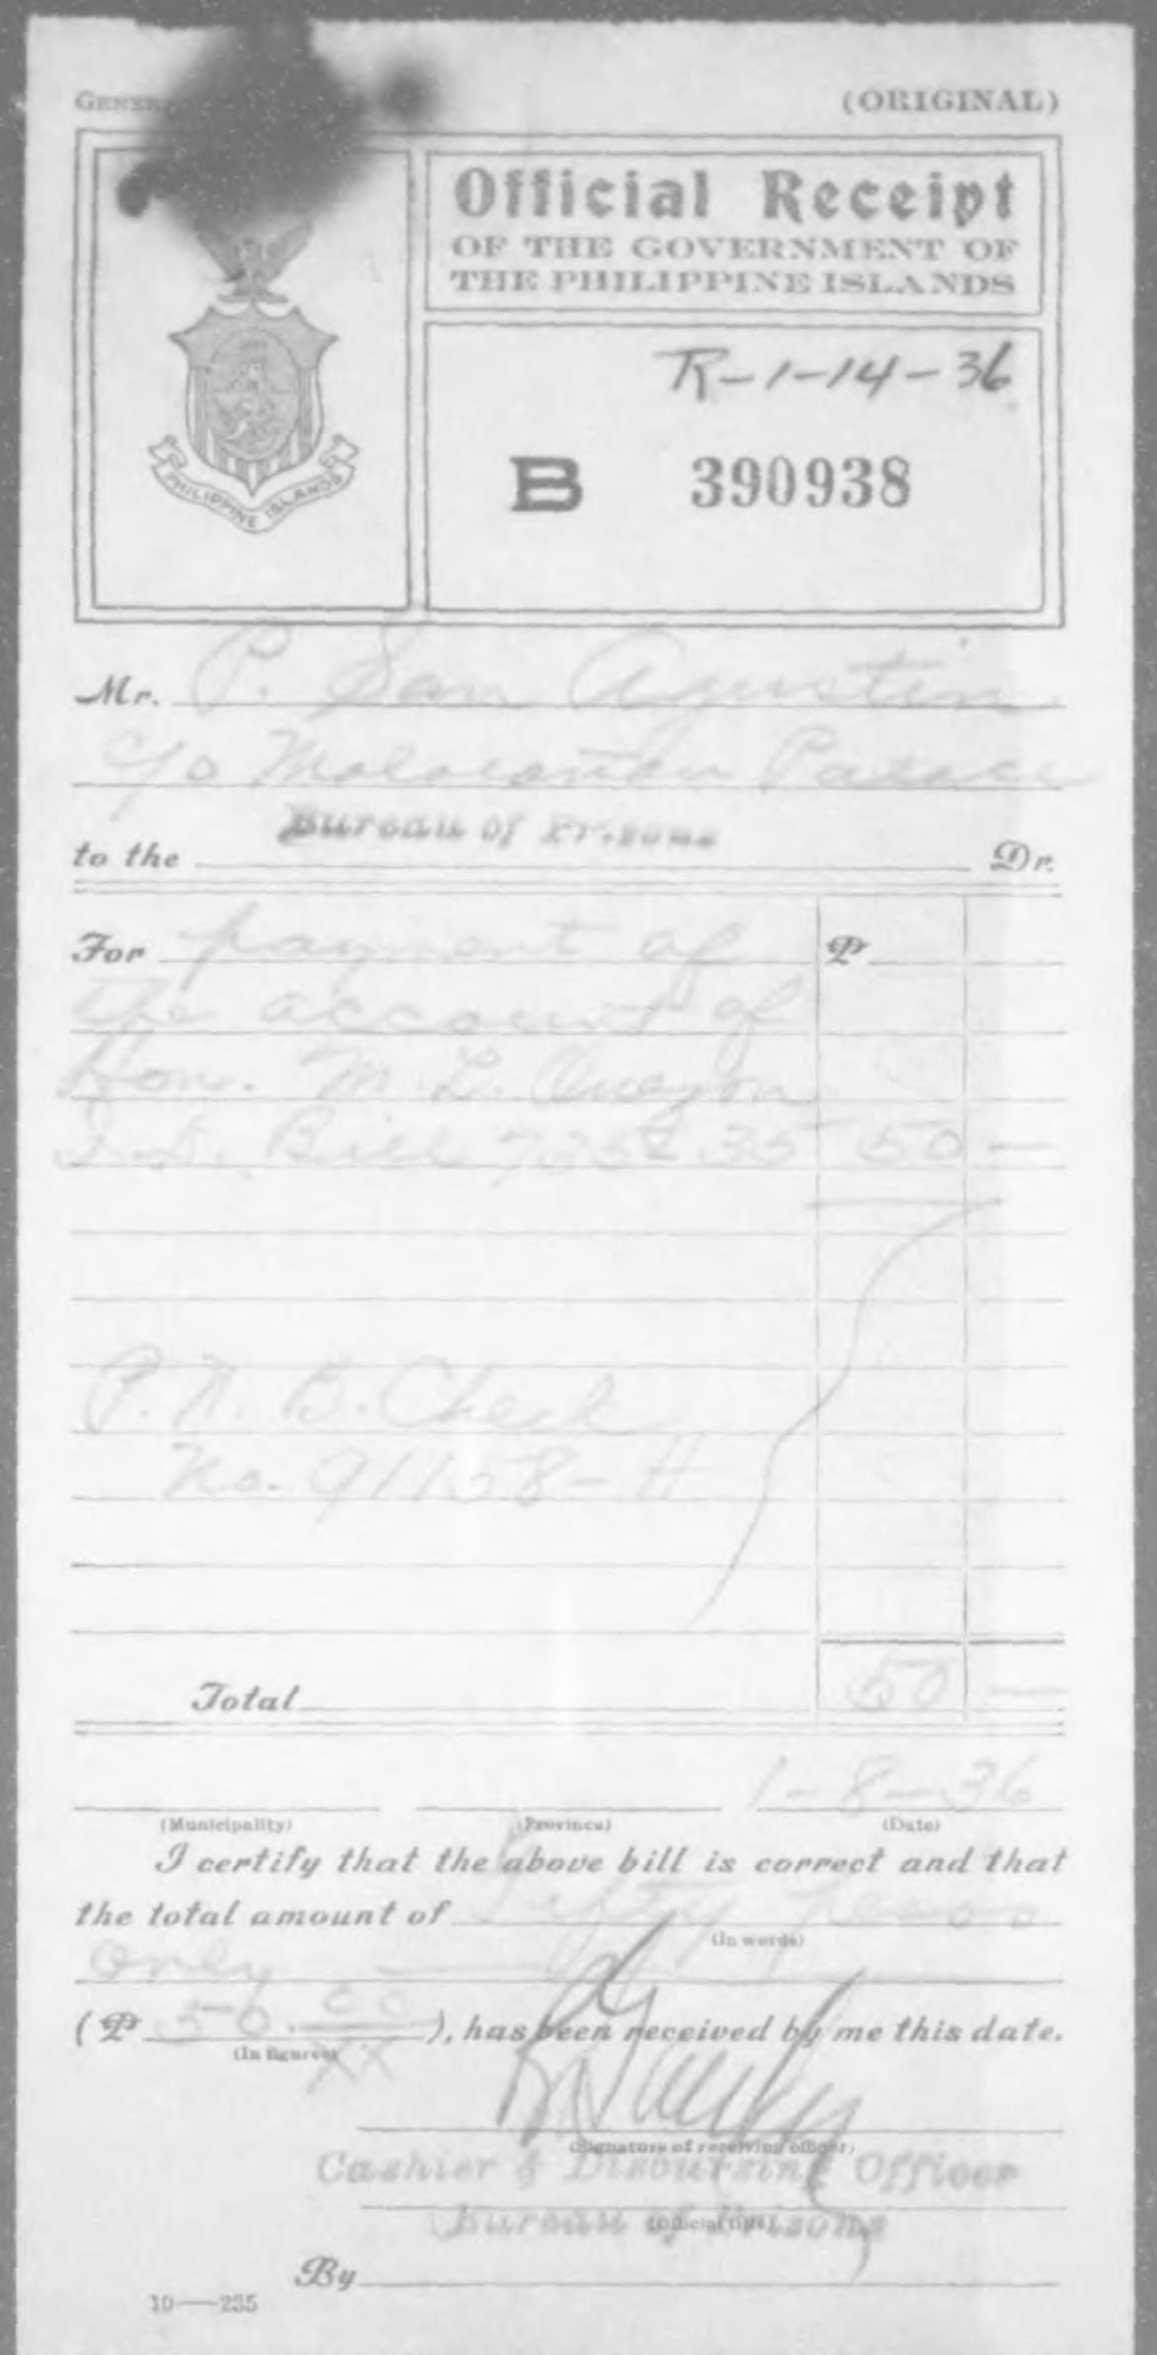 (ORIGINAL)
Official Receipt
OF THE GOVERNMENT OF
THE PHILIPPINE ISLANDS
PHILIPPINE ISLANDS
R-1-14-36
B 390938
Mr. P. San Agustin
c/o Malacañan Palace
Bureau of Prisons
to the Dr.
For payment of ₱
the account of
Hon. M. L. Quezon
Bill 35 50 —
P. N. B. Check
No. 91158-H
Total 50 —
1-8-36
(Municipality) (Province) (Date)
I certify that the above bill is correct and that
the total amount of Fifty Pesos
(In words)
only
(₱ 50.00/xx ), has been received by me this date.
(In figures)
(Signature of receiving officer)
Cashier & Disbursing Officer
Bureau of Prisons
(Official title)
By
10—235